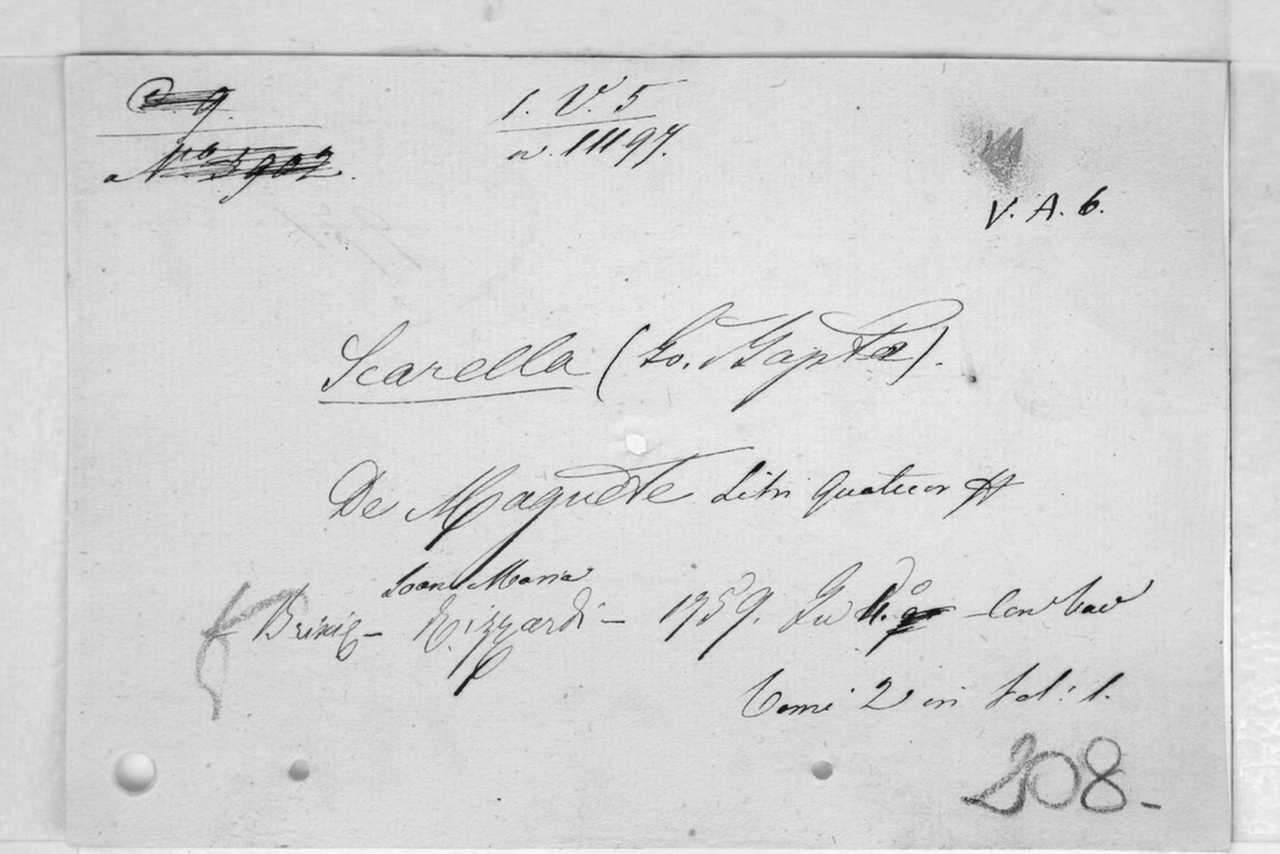 C. 9.
1. V. 5
Nro 5902.
n. 11197.
V. A. 6.
Scarella (Jo. Bapta).
De Magnete Libri quatuor #
Joan. Maria
Brixiæ – Rizzardi – 1759. In 4.º Con tav
Tomi 2 in Vol: 1.
208-